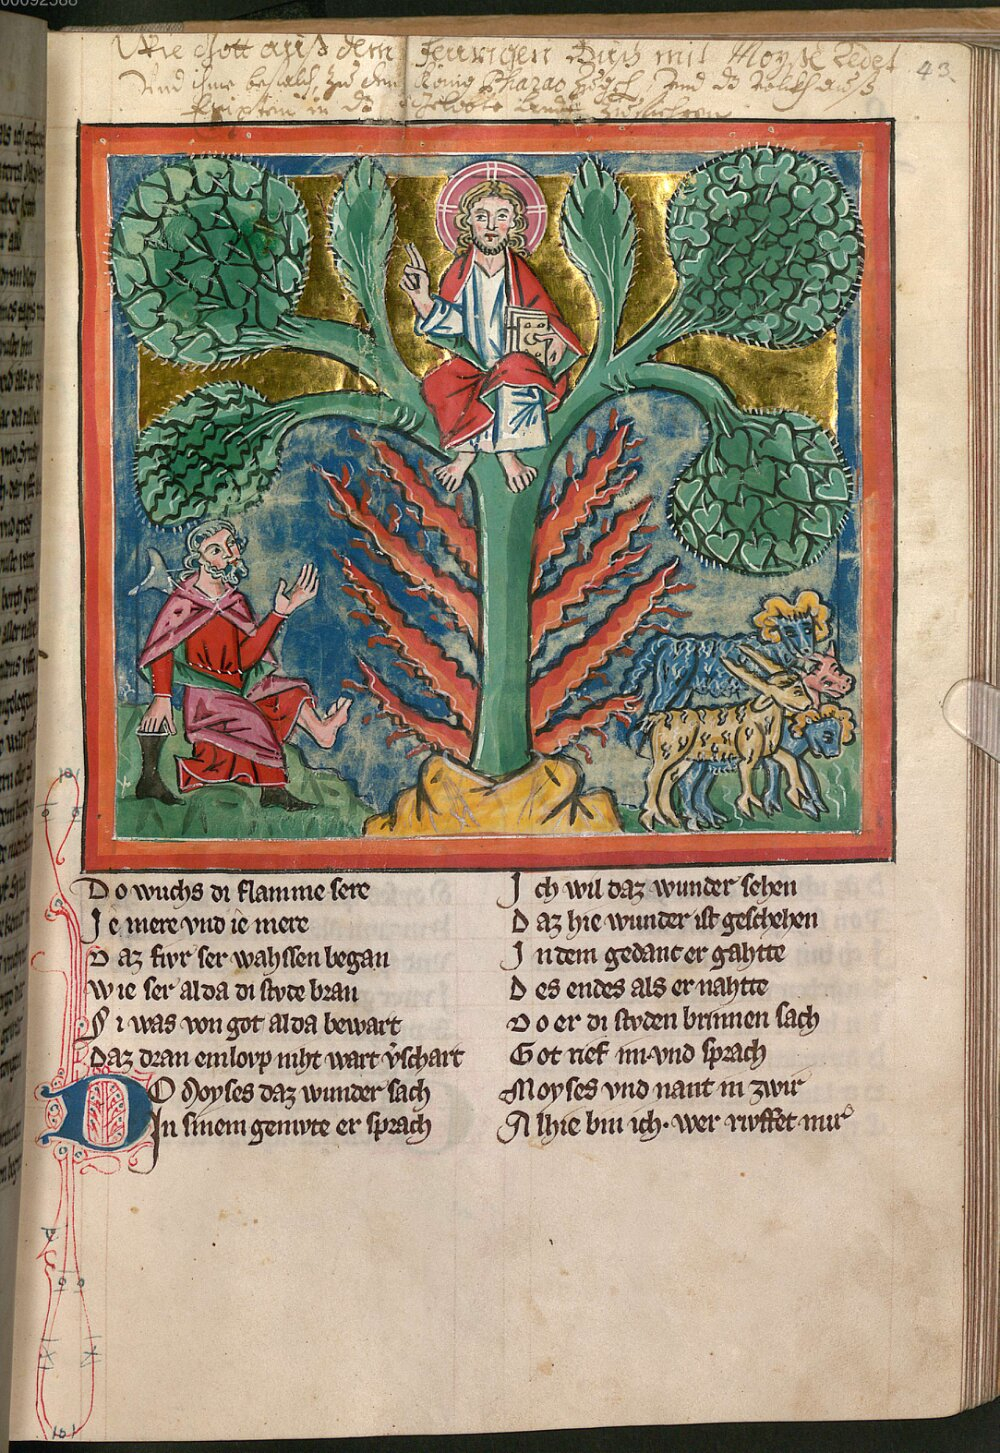 00092588
Wie Gott auß dem feurigen Busch mit Moyse Redet
43
Und ihme befalch, zu dem König Pharao Zugeh, Und daß Volckh auß
Egipten in das gelobte Landt Zufiehren
Do wuchs di flamme sere
Je mere vnd ie mere
Daz fivr ser wahssen began
Wie ser al da di stvde bran
Si was von got alda bewart
Daz dran ein lovp niht wart v̓schart
DO Moyses daz wunder sach
In sinem gemvte er sprach
Ich wil daz wunder sehen
Daz hie wunder ist geschehen
In dem gedanc er gahtte
Des endes als er nahtte
Do er di stvden brinnen sach
Got rief im vnd sprach
Moyses vnd nant in zwir
Alhie bin ich. wer rvffet mir